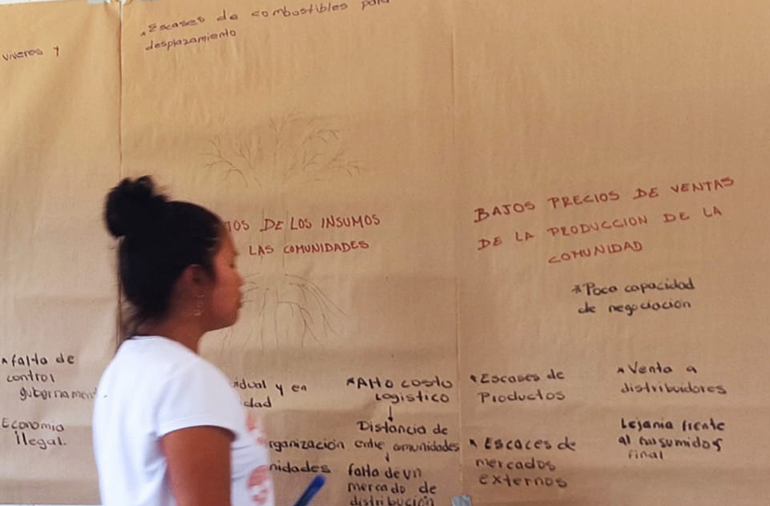 viveres y
*Escases de combustibles para
desplazamiento
DE LOS INSUMOS
LAS COMUNIDADES
BAJOS PRECIOS DE VENTAS
DE LA PRODUCCION DE LA
COMUNIDAD
*Poca capacidad
de negociación
*falta de
control
gubernament
Economia
Ilegal.
y en
*Alto costo
Logistico
Distancia de
entre comunidades
falta de un
mercado de
distribución
*Escases de
Productos
*Escaces de
mercados
externos
*Venta a
distribuidores
Lejania frente
al consumidor
final